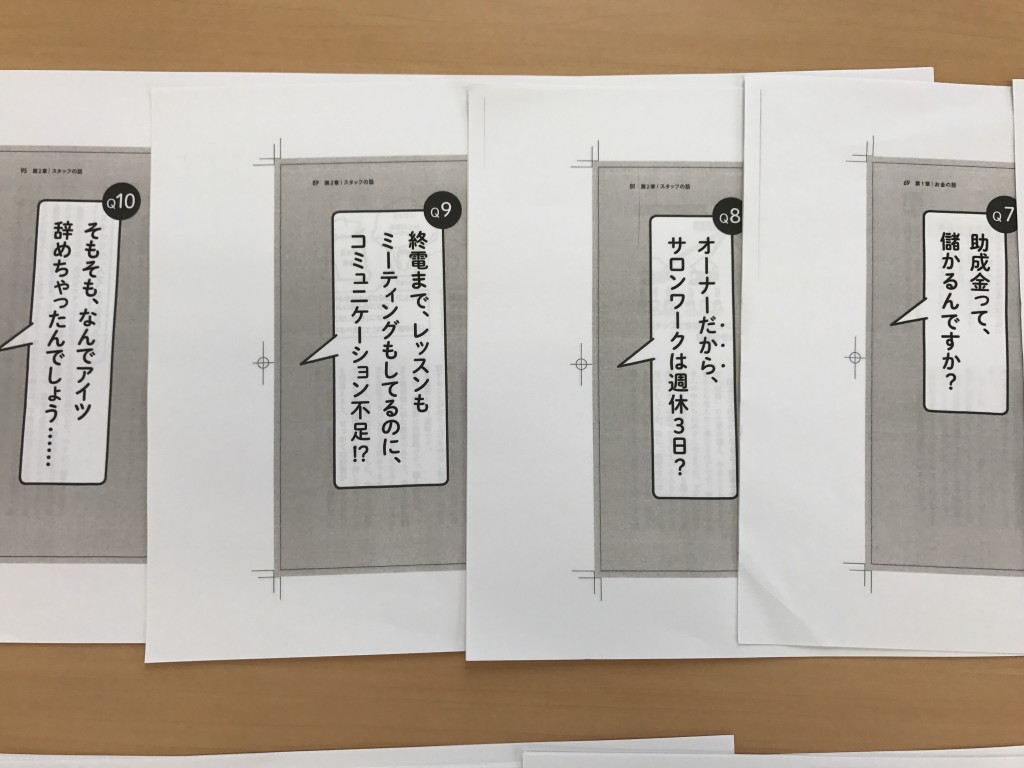 69 第1章｜お金の話
Q7
助成金って、
儲かるんですか？
81 第2章｜スタッフの話
Q8
オーナーだから、
サロンワークは週休3日？
89 第2章｜スタッフの話
Q9
終電まで、レッスンも
ミーティングもしてるのに、
コミュニケーション不足!?
95 第2章｜スタッフの話
Q10
そもそも、なんでアイツ
辞めちゃったんでしょう……